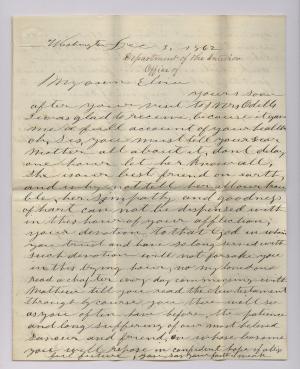 Washington Dec 3, 1862
Department of the Interior
Office of
My own Elma
yours soon
after your visit to Mrs Odells
I was glad to receive, because it gave
me a full account of your health
oh, Sis, you must tell your dear
Mother all about it, don't delay
one hour let her know all,
She is your best friend on earth,
and why not tell her all your trou
ble, her sympathy and goodness
of heart can not be dispensed with
in this hour of your affliction
your devotion to that God in whom
you trust and have so long served with
such devotion will not forsake you
in this trying hour, no my loved one
read a chapter every day commencing with
Mathew till you read the New testament
through by course you then will see
as you often have before, the patience
and long suffering of our most beloved
Saviour and friend, on whose bosom
you will repose in confident hope of a
full future, you say your faith is weak